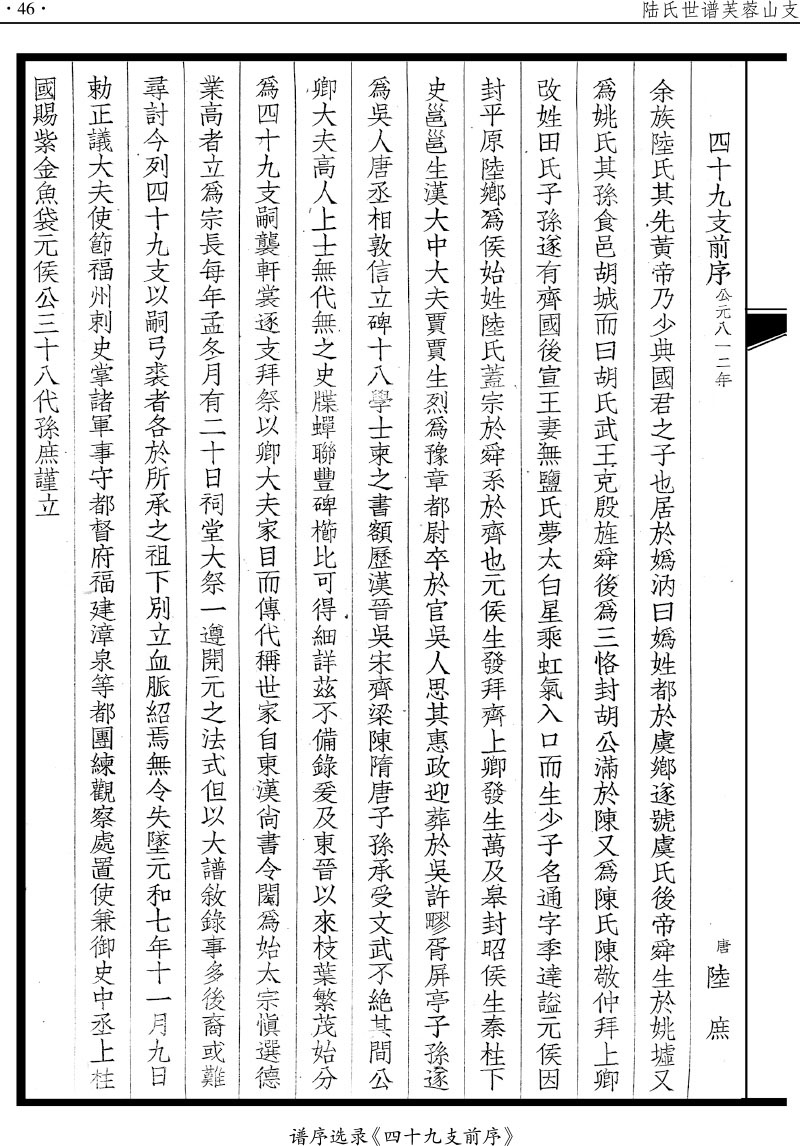 · 46 ·
陆氏世谱芙蓉山支
四十九支前序 公元八一二年 唐 陸庶
余族陸氏其先黃帝乃少典國君之子也居於嬀汭曰嬀姓都於虞鄉遂號虞氏後帝舜生於姚墟又
爲姚氏其孫食邑胡城而曰胡氏武王克殷旌舜後爲三恪封胡公滿於陳又爲陳氏陳敬仲拜上卿
改姓田氏子孫遂有齊國後宣王妻無鹽氏夢太白星乘虹氣入口而生少子名通字季達謚元侯因
封平原陸鄉爲侯始姓陸氏蓋宗於舜系於齊也元侯生發拜齊上卿發生萬及皋封昭侯生秦柱下
史邕邕生漢大中大夫賈賈生烈爲豫章都尉卒於官吳人思其惠政迎葬於吳許疁胥屏亭子孫遂
爲吳人唐丞相敦信立碑十八學士柬之書額歷漢晉吳宋齊梁陳隋唐子孫承受文武不絕其間公
卿大夫高人上士無代無之史牒蟬聯豐碑櫛比可得細詳茲不備錄爰及東晉以來枝葉繁茂始分
爲四十九支嗣襲軒裳逐支拜祭以卿大夫家目而傳代稱世家自東漢尙書令閎爲始太宗愼選德
業高者立爲宗長每年孟冬月有二十日祠堂大祭一遵開元之法式但以大譜敘錄事多後裔或難
尋討今列四十九支以嗣弓裘者各於所承之祖下別立血脈紹焉無令失墜元和七年十一月九日
勅正議大夫使節福州刺史掌諸軍事守都督府福建漳泉等都團練觀察處置使兼御史中丞上柱
國賜紫金魚袋元侯公三十八代孫庶謹立
谱序选录《四十九支前序》